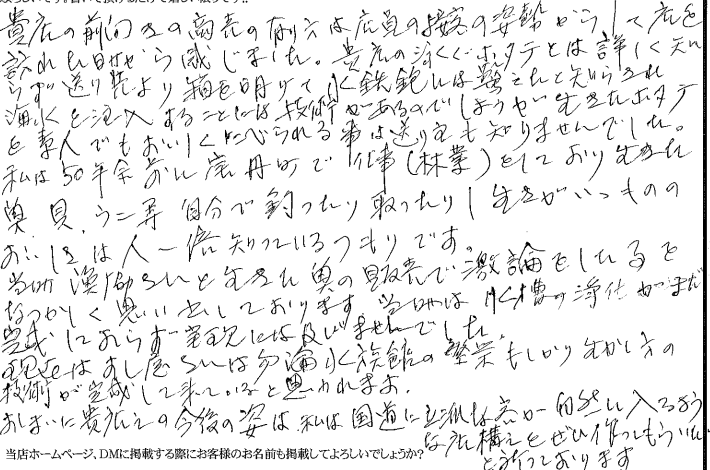 貴店の前向きの商売のなり方は店員の接客の姿勢から して店を
訪れた時から感じました。貴店の ホタテとは詳しく知
らず送り先より箱を明けて水鉄砲には驚えたと知らされ
海水を注入することには技術があるのでしょうが生きたホタテ
を素人でもおいしく食べられる事は送り主も知りませんでした。
私は50年余前に 町で仕事(林業)をしており生きた
魚、貝、うに等 自分で釣ったり取ったりし生きがいつものの
おいしさは人一倍知っているつもりです。
当時漁師さんと生きた魚の販売で激論をした事を
なつかしく思い出しております。当時は水槽の浄化がまだ
完成しておらず実現には及びませんでした。
現在はすし屋さんは勿論水族館の繁栄もしかり生かし方の
技術が完成して来ていると思われます。
おしまいに貴店えの今後の姿は私は国道に立派な 自然に入るよう
な店構えをぜひ作ってもらいたい
と祈っております
当店ホームページ、DMに掲載する際にお客様のお名前も掲載してよろしいでしょうか?